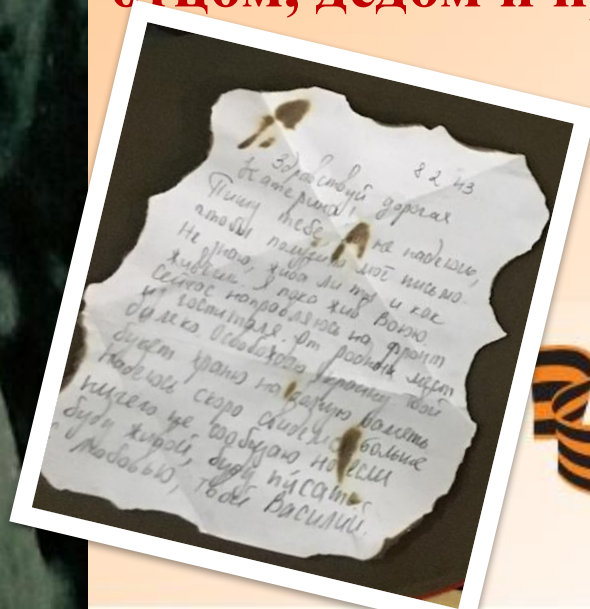 отцом, дедом и
8 2 43
Здравствуй дорогая
Катерина!
Пишу тебе, не надеюсь,
чтобы получила моё письмо.
Не знаю, жива ли ты и как
живёшь. Я пока жив Воюю.
Сейчас направляюсь на фронт
из госпиталя. От родных мест
далеко Освобождаю Украину твой
букет храню на вечную память
надеюсь скоро больше
ничего не сообщаю но если
буду живой, буду писать.
С любовью, твой Василий.